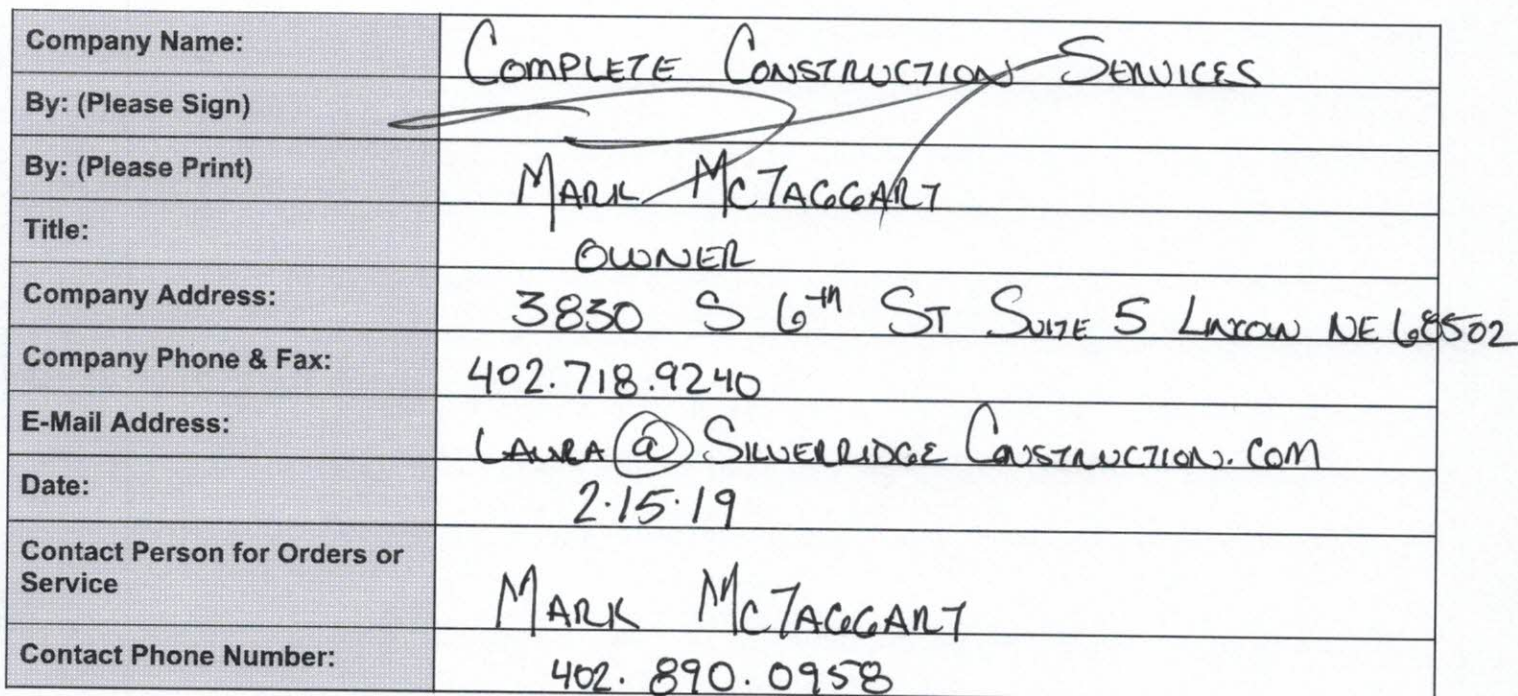 Company Name: COMPLETE CONSTRUCTION SERVICES
By: (Please Sign)
By: (Please Print) MARK MCTAGGART
Title: OWNER
Company Address: 3830 S 6TH ST SUITE 5 LINCOLN NE 68502
Company Phone & Fax: 402.718.9240
E-Mail Address: LAURA@SILVERRIDGECONSTRUCTION.COM
Date: 2.15.19
Contact Person for Orders or
Service MARK MCTAGGART
Contact Phone Number: 402.890.0958